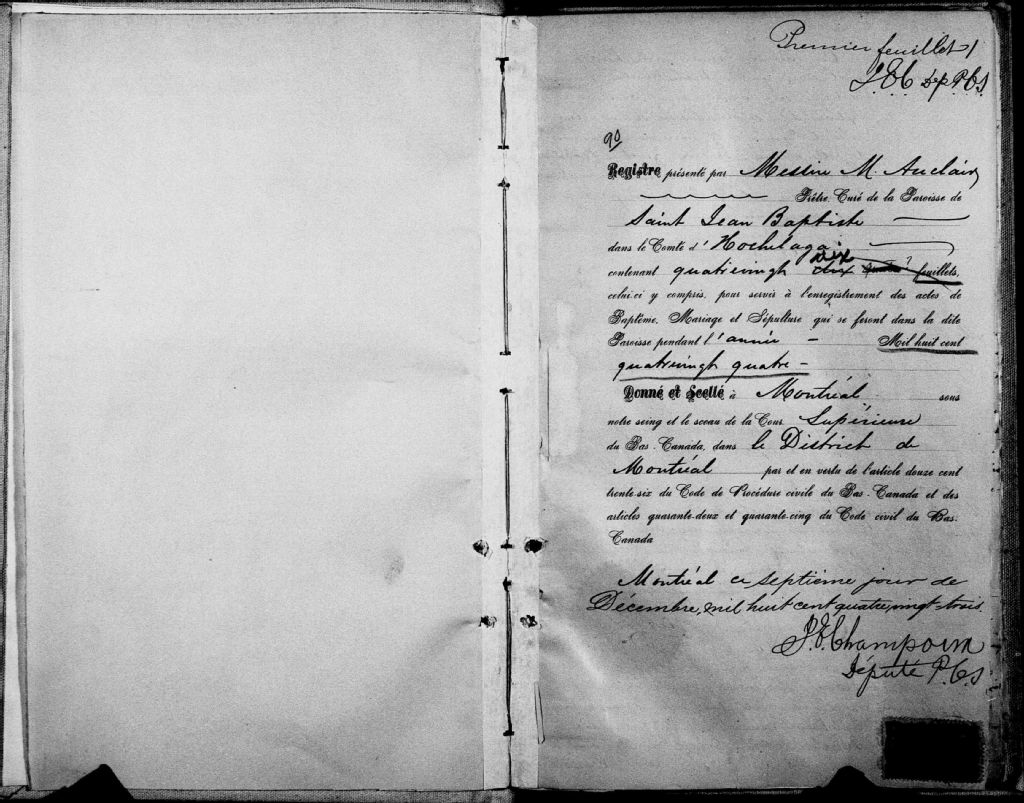 Premier feuillet 1
J.E.C Dép P.C.S.
90
Registre présenté par Messire M. Auclair
Prêtre, Curé de la Paroisse de
Saint Jean Baptiste
dans le Comté d'Hochelaga
contenant quatrevingt dix feuillets,
celui-ci y compris, pour servir à l'enregistrement des actes de
Baptême, Mariage et Sépulture qui se feront dans la dite
Paroisse pendant l'année — Mil huit cent
quatrevingt quatre —
Donné et Scellé à Montréal sous
notre seing et le sceau de la Cour Supérieure
du Bas-Canada, dans le District de
Montréal par et en vertu de l'article douze cent
trente-six du Code de Procédure civile du Bas-Canada et des
articles quarante-deux et quarante-cinq du Code civil du Bas-
Canada
Montréal ce septième jour de
Décembre, mil huit cent quatrevingt-trois.
Député P.C.S